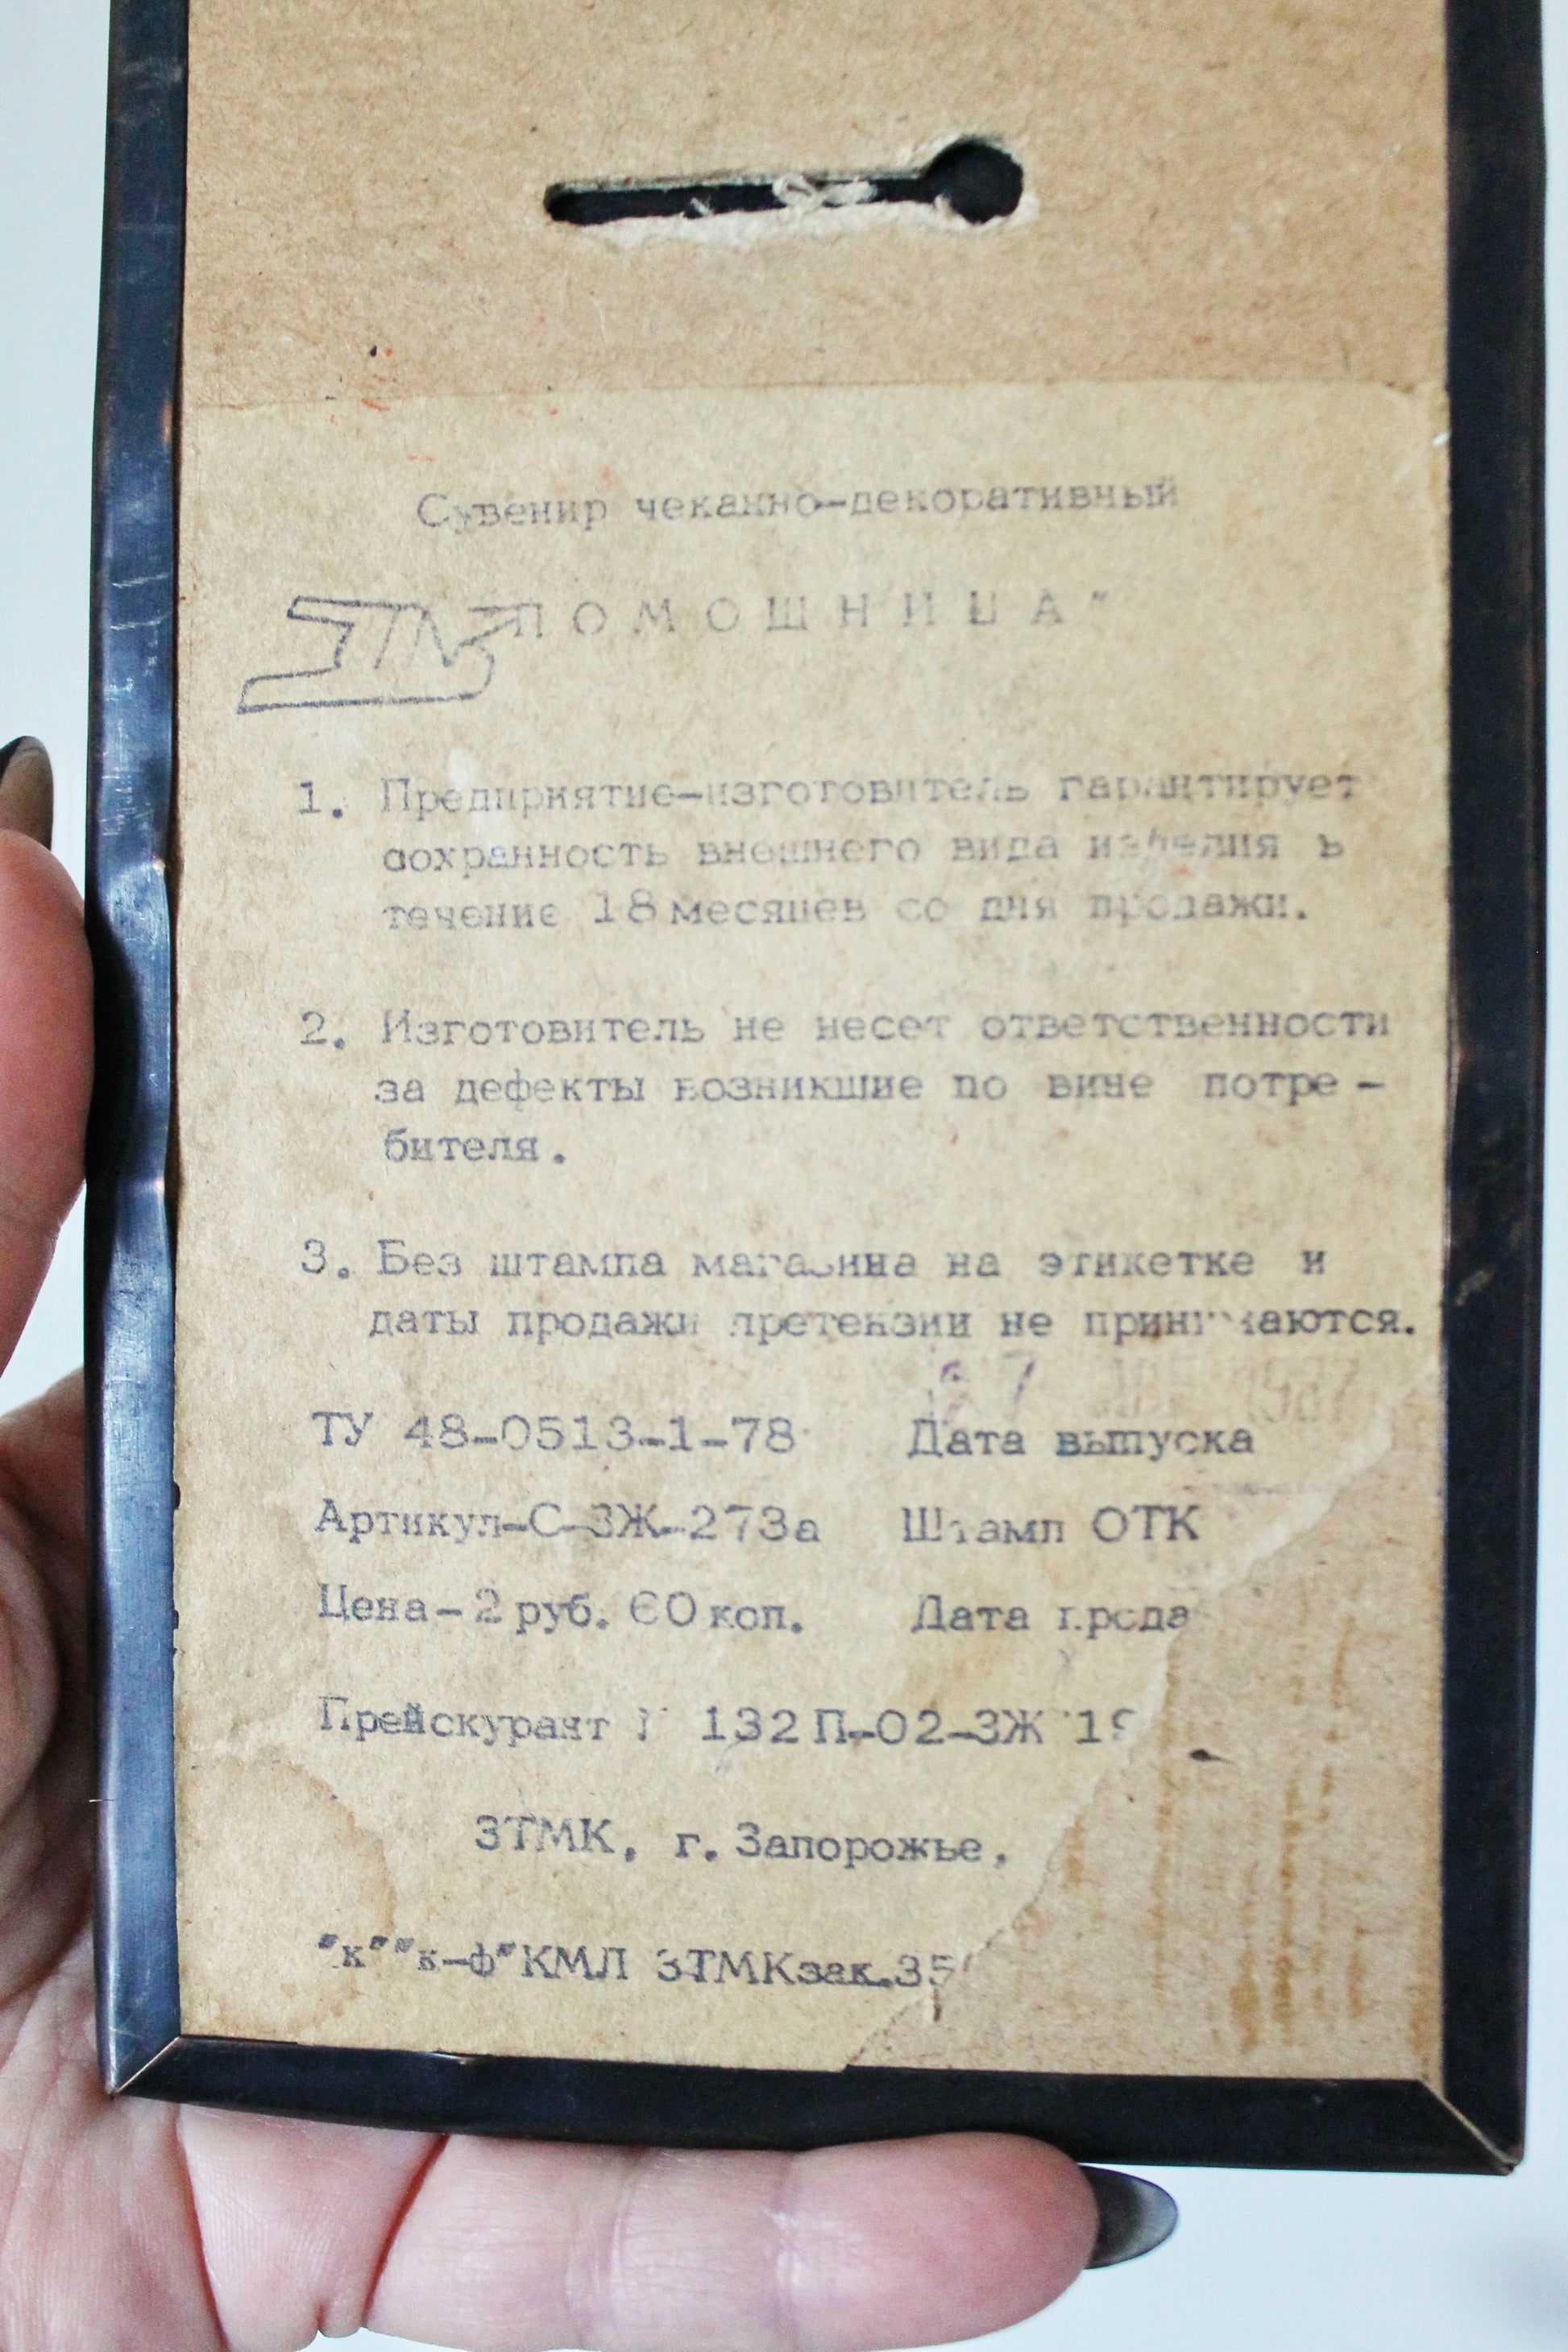 Сувенир чеканно-декоративный
"ПОМОШНИЦА"
1. Предприятие-изготовитель гарантирует
сохранность внешнего вида изделия в
течение 18 месяцев со дня продажи.
2. Изготовитель не несет ответственности
за дефекты возникшие по вине потре-
бителя.
3. Без штампа магазина на этикетке и
даты продажи претензии не принимаются.
ТУ 48-0513-1-78 Дата выпуска
Артикул-С-ЗЖ-273а Штамп ОТК
Цена-2 руб. 60 коп. Дата прода
Прейскурант № 132П-02-ЗЖ 19
ЗТМК, г. Запорожье,
"к" "к-ф" КМЛ ЗТМК зак.35